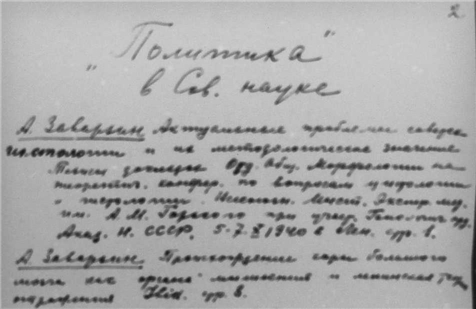 2
"Политика"
в Сов. науке
А. Заварзин Актуальные проблемы советск
гистологии и их методологическое значение
Тезисы докладов Орг. Общ. Морфологии на
теоретич. конфер. по вопросам цитологии
и гистологии. Инст. Экспер. мед.
им. А. М. Горького при
Акад. Н. СССР, 5-7.X 1940 в Лен. стр. 1.
А. Заварзин. Происхождение коры большого
мозга как органа мышления и ленинская теор
отражения Ibid. стр. 8.